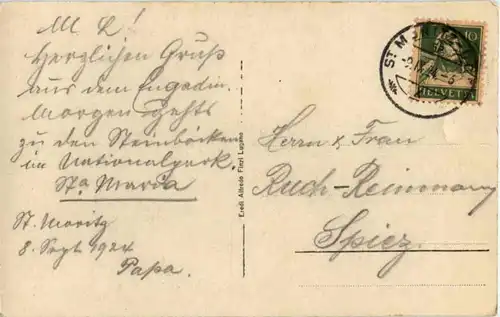 M. L!
Herzlichen Gruß
aus dem Engadin.
Morgen gehts
zu den Steinböcken
im Nationalpark.
Sta Maria
St. Moritz
8. Sept 1924
Papa.
Eredi Alfredo Finzi Lugano
10
HELVETIA
St. M
Herrn & Frau
Ruch-Reimmann
Spiez.